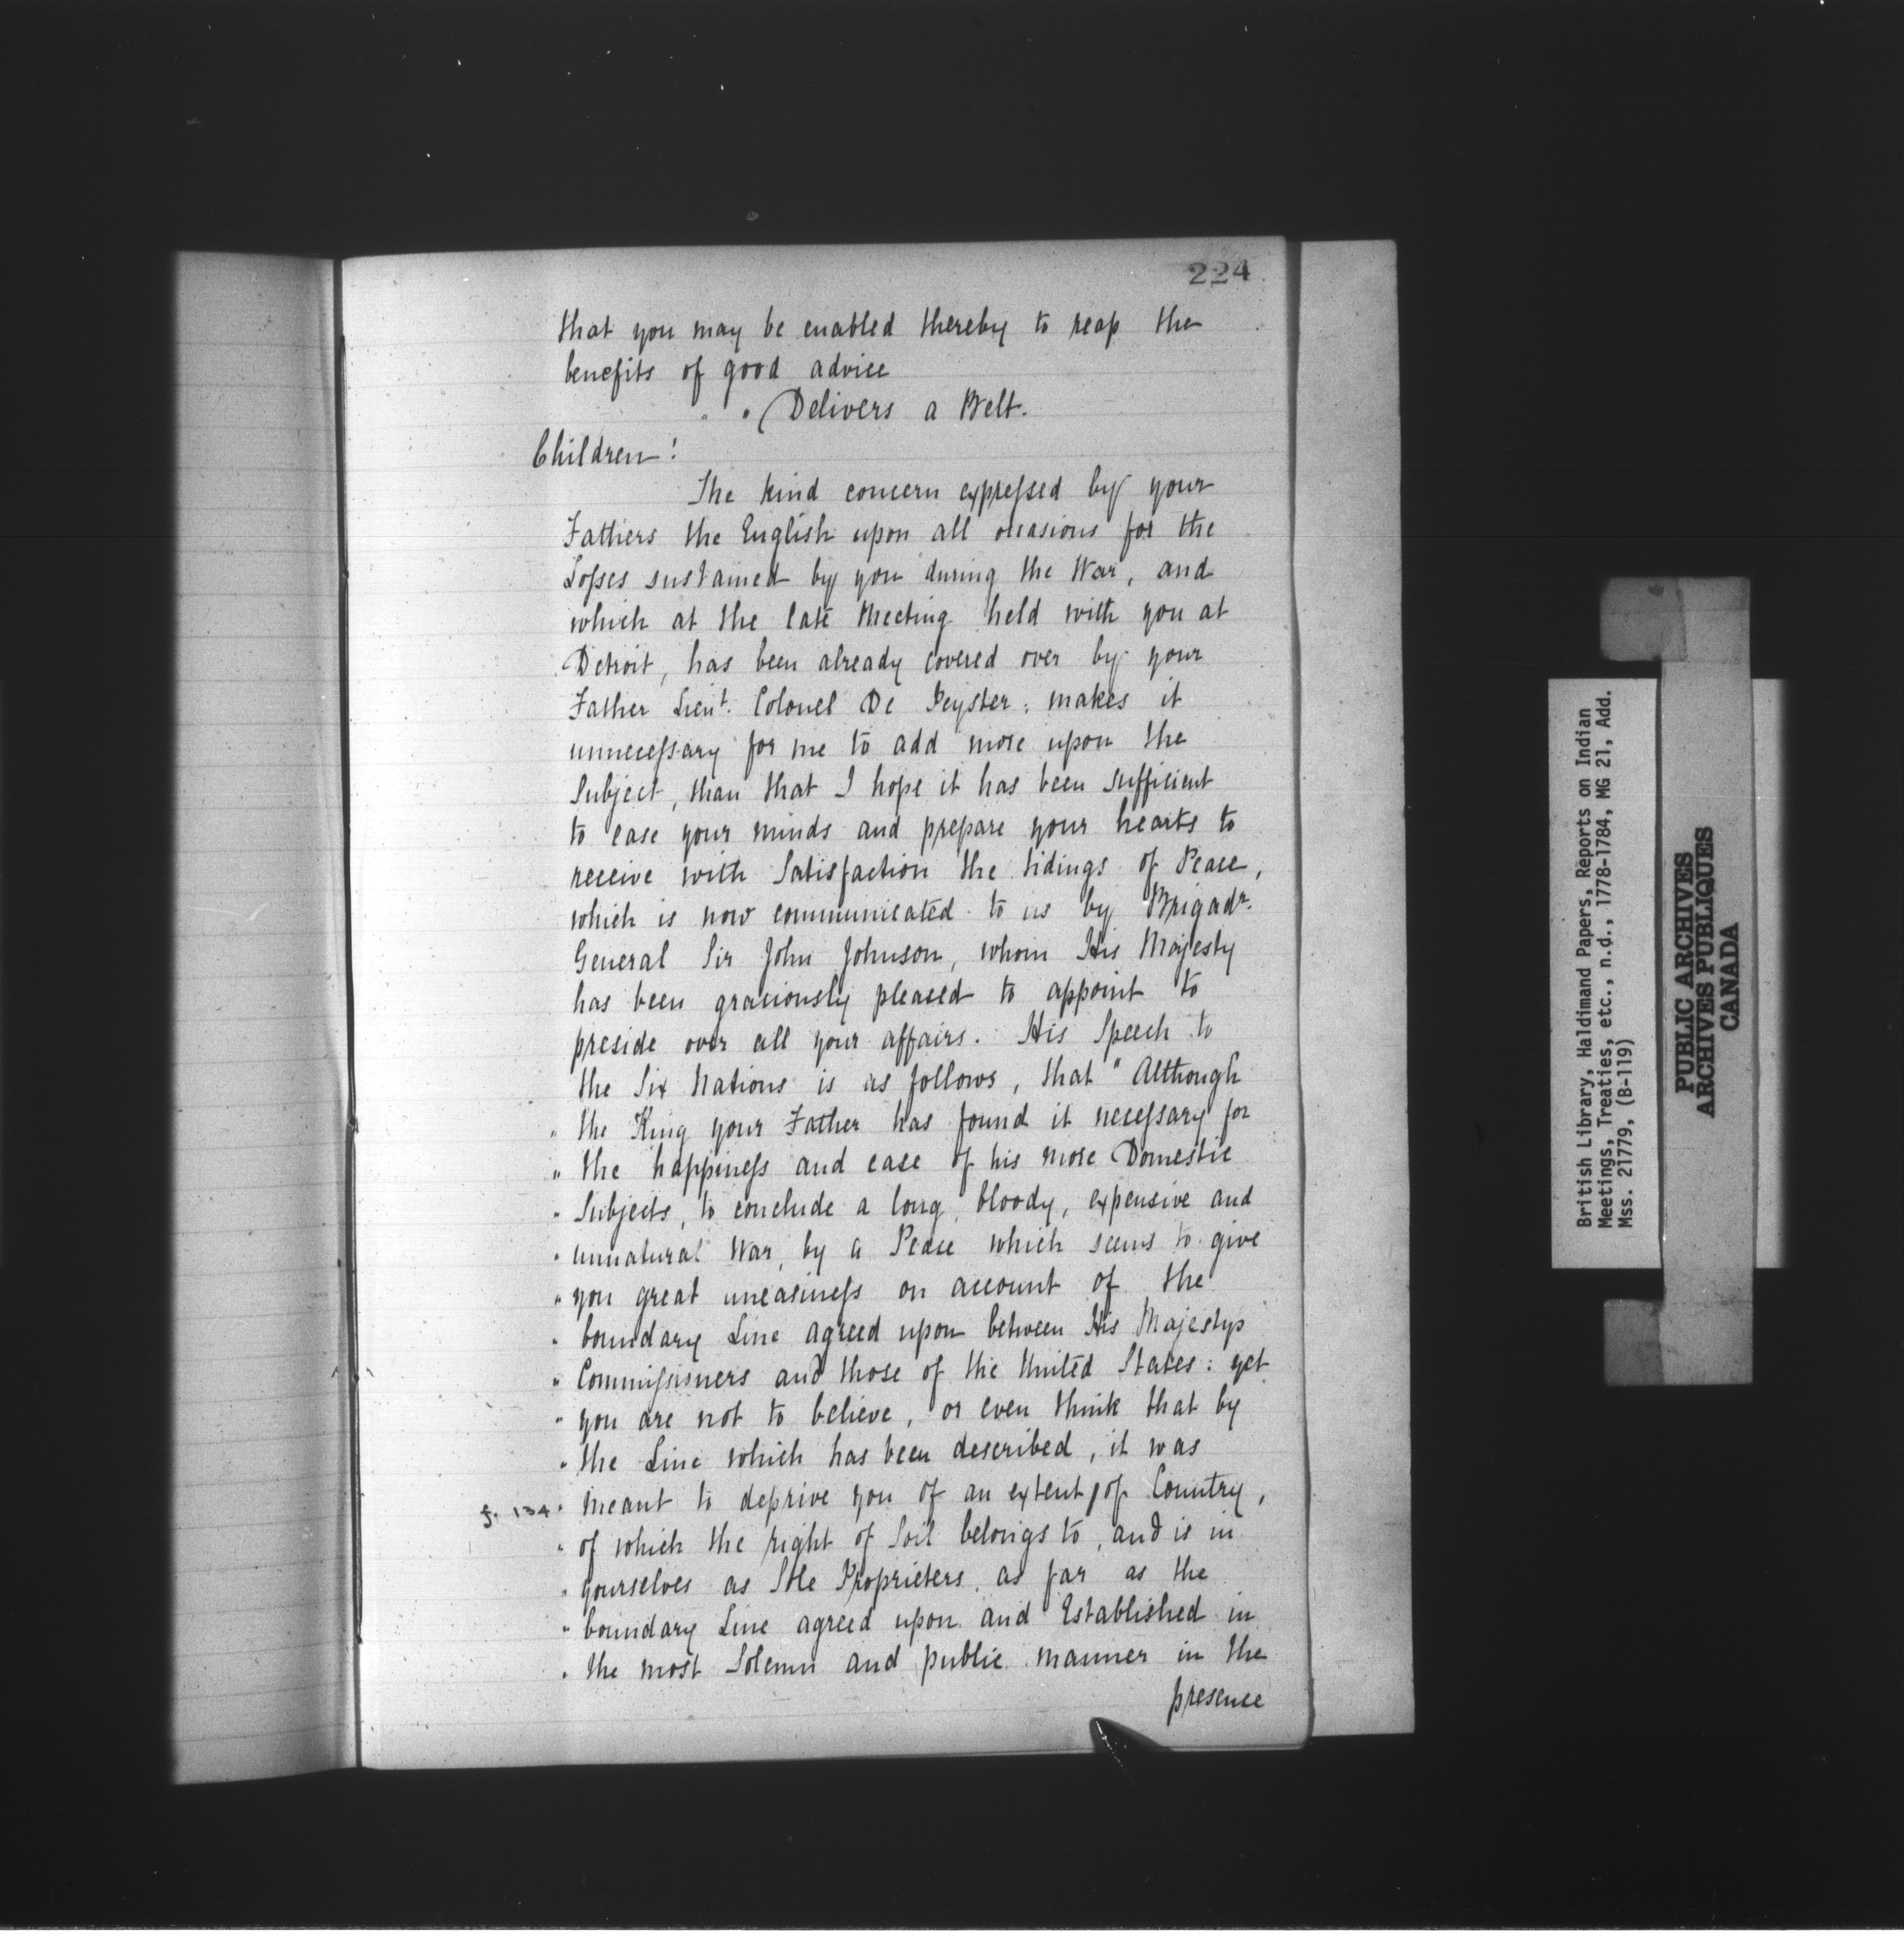 224
that you may be enabled thereby to reap the
benefits of good advice
(Delivers a Belt.
Children!
The kind concern expreſsed by your
Fathers the English upon all occasions for the
Loſses sustained by you during the War, and
which at the late Meeting held with you at
Detroit, has been already covered over by your
Father Lieut. Colonel De Peyster: makes it
unneceſsary for me to add more upon the
Subject, than that I hope it has been sufficient
to ease your minds and prepare your hearts to
receive with Satisfaction the tidings of Peace,
which is now communicated to us by Brigadr.
General Sir John Johnson, whom His Majesty
has been graciously pleased to appoint to
preside over all your affairs. His Speech to
the Six Nations is as follows, that "Although
" the King your Father has found it neceſsary for
" the happineſs and ease of his more Domestic
" Subjects, to conclude a long, bloody, expensive and
" unnatural War, by a Peace which seems to give
" you great uneasineſs on account of the
" boundary Line agreed upon between His Majestys
" Commiſsioners and those of the United States: yet
" you are not to believe, or even think that by
" the Line which has been described, it was
f. 134 " meant to deprive you of an extent / of Country,
" of which the right of Soil belongs to, and is in
" yourselves as Sole Proprieters, as far as the
" boundary Line agreed upon and Established in
" the most Solemn and public manner in the
presence
British Library, Haldimand Papers, Reports on Indian
Meetings, Treaties, etc., n.d., 1778-1784, MG 21, Add.
Mss. 21779, (B-119)
PUBLIC ARCHIVES
ARCHIVES PUBLIQUES
CANADA